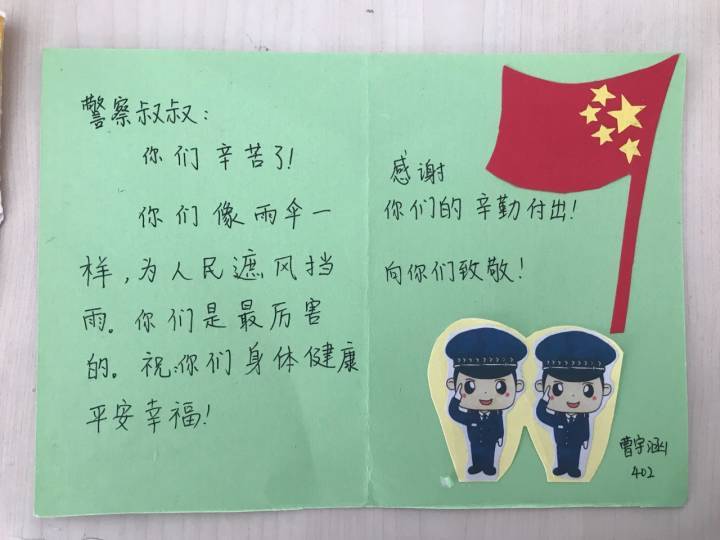 警察叔叔:
你们辛苦了!
你们像雨伞一
样,为人民遮风挡
雨。你们是最厉害
的。祝你们身体健康
平安幸福!
感谢
你们的辛勤付出!
向你们致敬!
曹宇涵
402